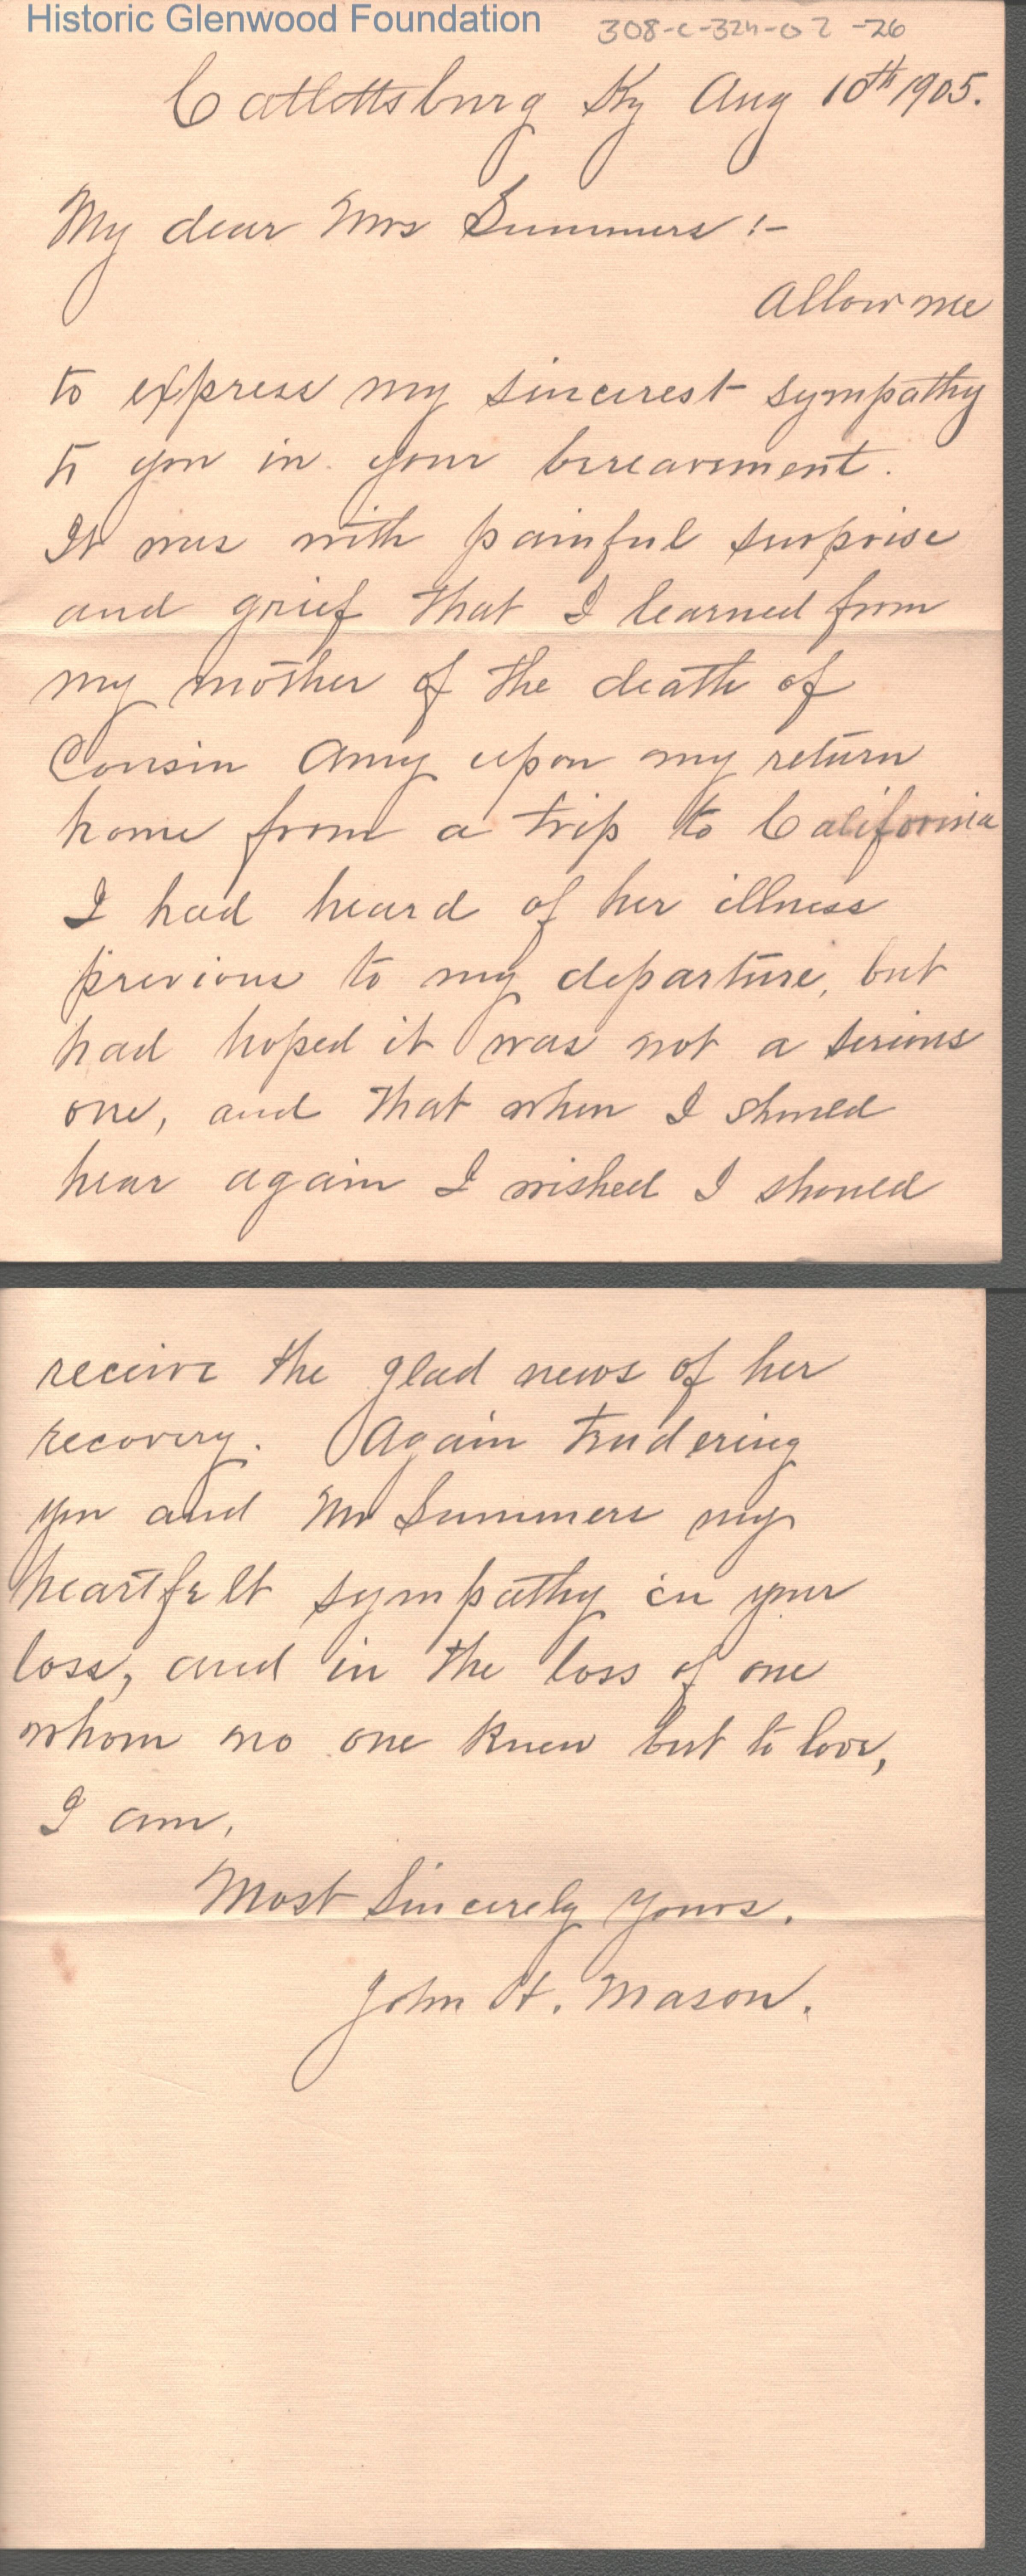 Historic Glenwood Foundation
308-c-324-02-26
Catlettsburg Ky Aug 10th 1905.
My dear Mrs Summers :-
Allow me
to express my sincerest sympathy
to you in your bereavement.
It was with painful surprise
and grief that I learned from
my mother of the death of
Cousin Amy upon my return
home from a trip to California
I had heard of her illness
previous to my departure, but
had hoped it was not a serious
one, and that when I should
hear again I wished I should
receive the glad news of her
recovery. Again tendering
you and Mr Summers my
heartfelt sympathy in your
loss, and in the loss of one
whom no one knew but to love,
I am,
Most Sincerely Yours.
John H. Mason.